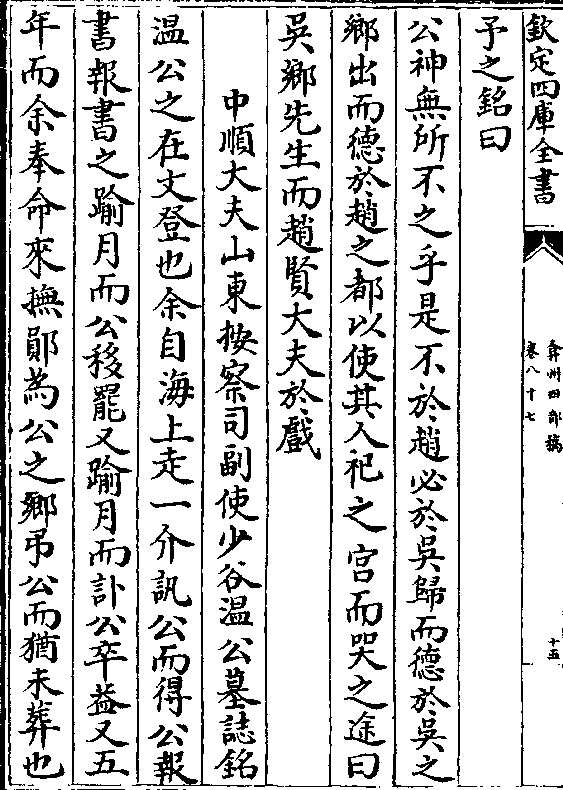 欽定四庫全書
弇州四部稿
卷八十七
十五
予之銘曰
公神無所不之乎是不於趙必於吳歸而德於吳之
鄉出而德於趙之都以使其人祀之宮而哭之途曰
吳鄉先生而趙賢大夫於戲
中順大夫山東按察司副使少谷溫公墓誌銘
溫公之在文登也余自海上走一介訊公而得公報
書報書之踰月而公移罷又踰月而訃公卒益又五
年而余奉命來撫鄖為公之鄉弔公而猶未葬也